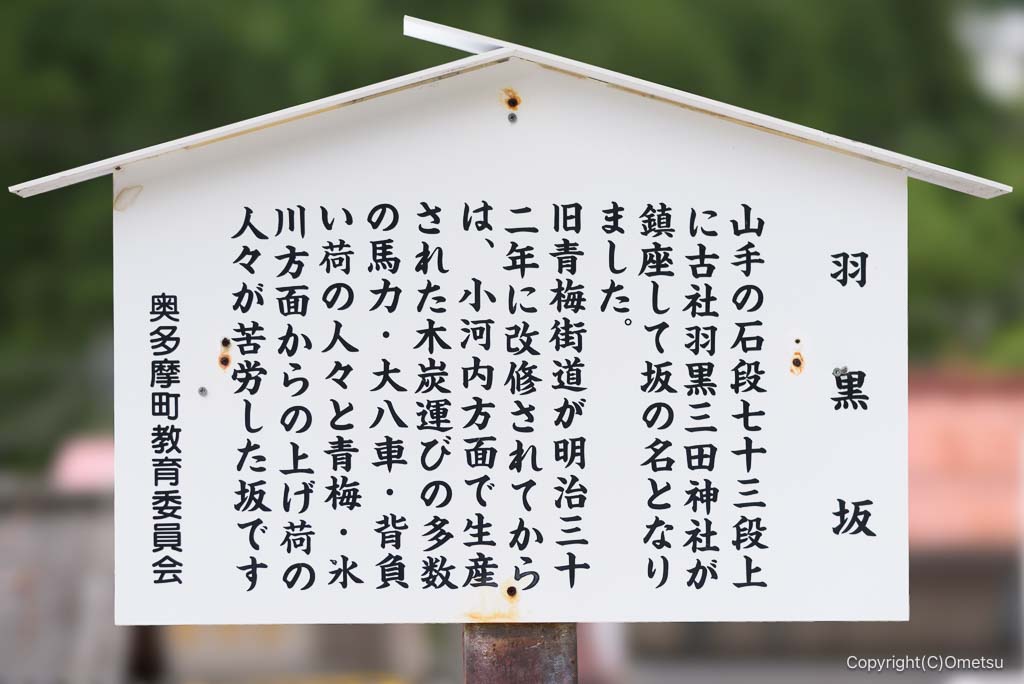 羽黒坂
山手の石段七十三段上
に古社羽黒三田神社が
鎮座して坂の名となり
ました。
旧青梅街道が明治三十
二年に改修されてから
は、小河内方面で生産
された木炭運びの多数
の馬力・大八車・背負
い荷の人々と青梅・氷
川方面からの上げ荷の
人々が苦労した坂です
奥多摩町教育委員会
Copyright(C)Ometsu